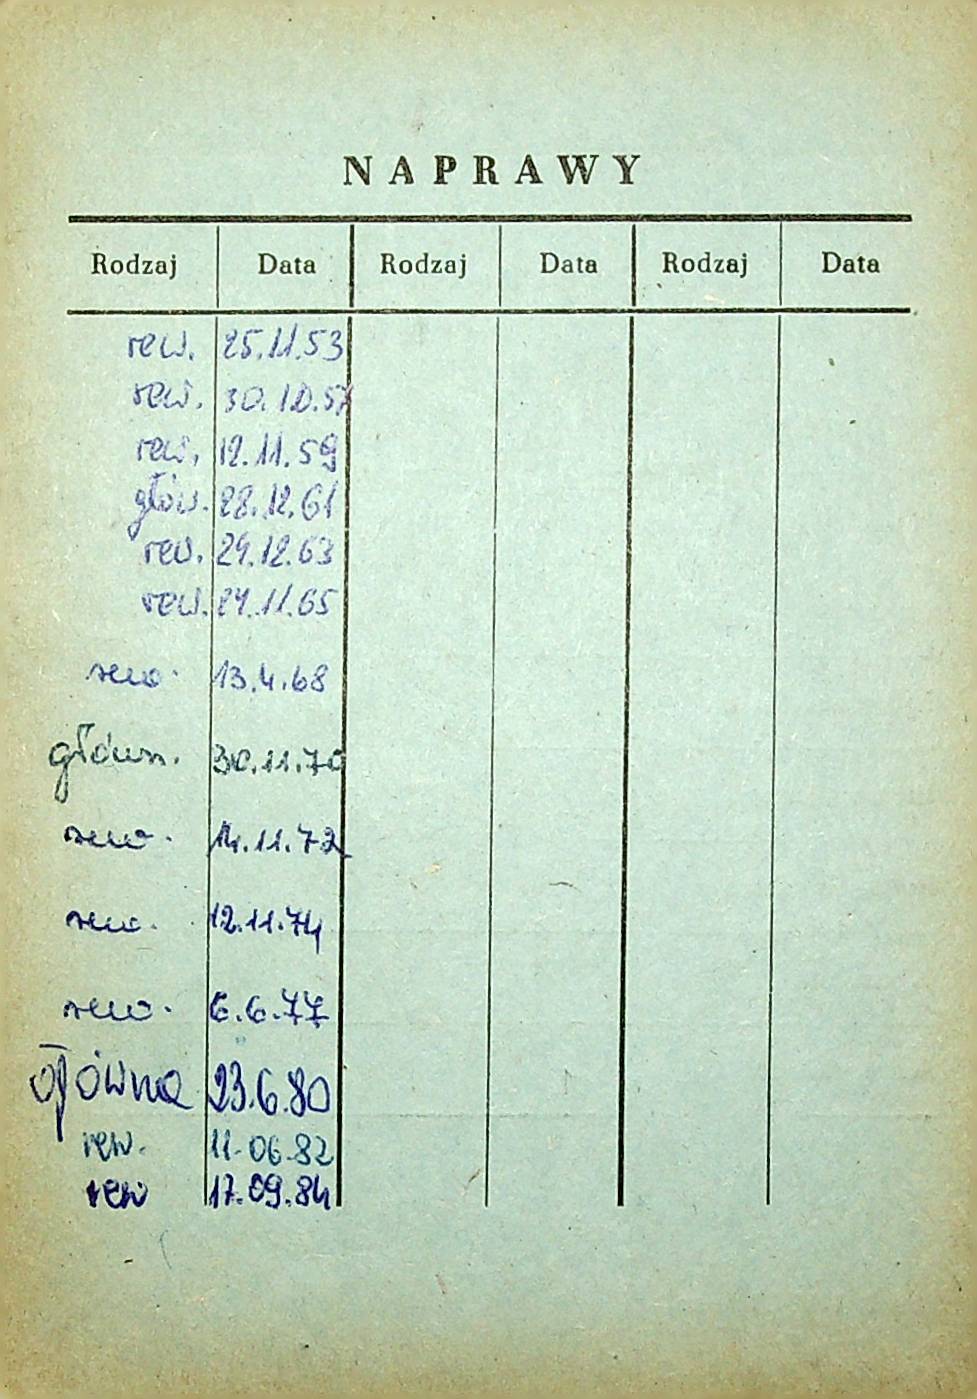 NAPRAWY
Rodzaj Data Rodzaj Data Rodzaj Data
rew. 25.11.53
rew. 30.10.57
rew. 12.11.59
głów. 28.12.61
rew. 29.12.63
rew. 24.11.65
rew. 13.4.68
główn. 30.11.70
rew. 14.11.72
rew. 12.11.74
rew. 6.6.77
główna 23.6.80
rew. 11-06-82
rew 17.09.84